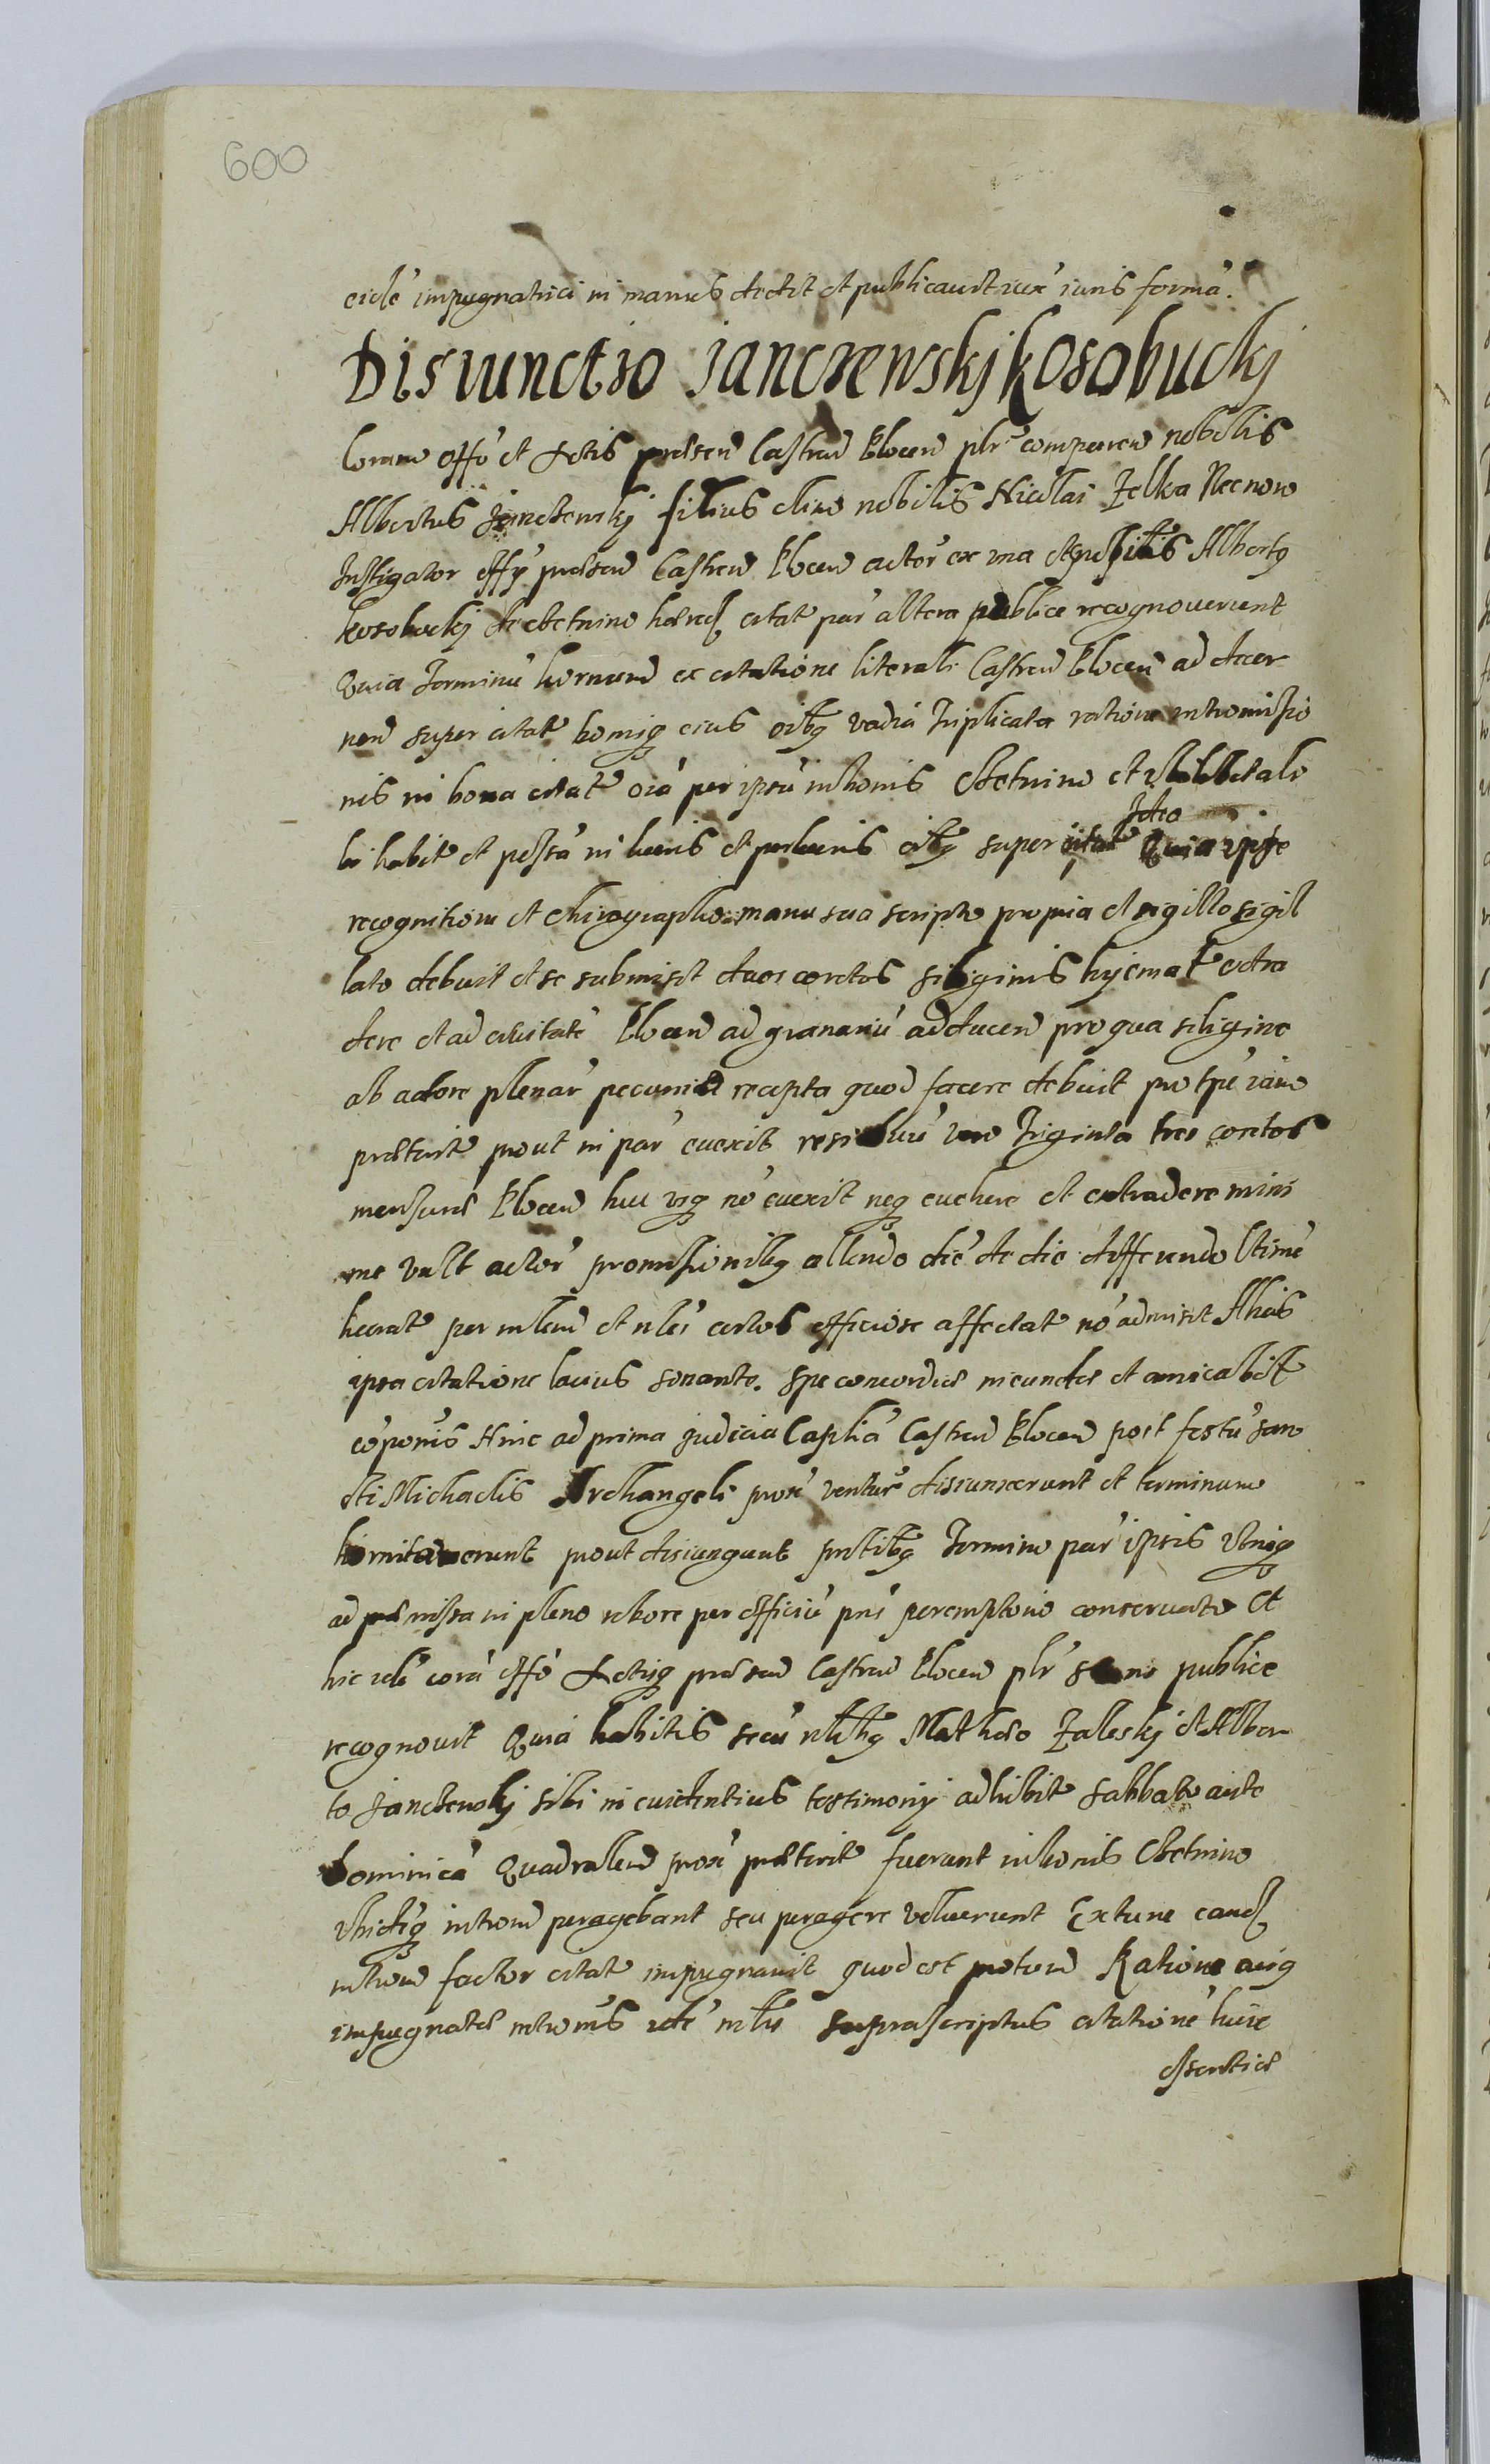 600
eidē impugnatrici in manus dedit et publicavit iux iuris formā.
Disiunctio Janczewskj kosobuckj
Coram offō et Actis præsen Castren Plocen plr̄ comparen nobilis
Albertus Janczewskj filius olim nobilis Nicolai Zelka Necnon
Instigator offÿ præsen Castren Plocen actor ex una et nobilis Albertꝫ
kosobuckj de Chetnino hæred citat par altera publice recognoverunt
Quia Terminū hornum ex citatione literali Castren Plocen ad decer
nen super citat bonisꝗ eius oibꝫ vadia Triplicata ratione intromissio
nis in bona citat oia per ipsū in bonis Chetnino et
bi habit et possā in lucris et perlucris oibꝫ super citat Ideo Quia ipse
recognitione et chirographo manu sua scripto propria et sigillo sigil
lato debuit et se submisit duos corctos siliginis hyemat extra
dere et ad civitatē Plocen ad granariū adducen pro qua siligine
ab actore plenar pecunia recepta quod facere debuit pro tpē iam
præterit prout in par evexit residuū vero Triginta tres corctos
mensuræ Plocen huc usꝗ nō evexit neꝗ evehere et extradere mini
me vult actor promissionibꝫ allendo diē de die differendo
per et certos officiose affectat nō admisit Alias
ipsa citatione latius sonante. Spe concordiæ ineundæ et amicabil
cōponis Hinc ad prima Judicia Caplia Castren Plocen post festū san
cti Michaelis Archangeli prox ventur disiunxerunt et terminum
limitaverunt prout disiungunt pntibꝫ Termino par ipsis utrisꝗ
ad præmissa in pleno robore per officiū pns peremptorie conservato Et
hic idē corā offō Actisꝗ præsen Castren Plocen plr̄ stans publice
recognovit Quia habitis secū nlibꝫ Mathæo Zaleskj et Alber
to Janczewskj sibi in evidentius testimonÿ adhibit sabbato ante
Dominicā Quadralem prox præterit fuerunt in bonis Chetnino
ibidēꝗ introm peragebant seu peragere voluerunt Extunc eand
introm factor citat impugnavit quod est protom Ratione cuiꝗ
impugnatæ intromis idē suprascriptus citationē huic
essentiæ